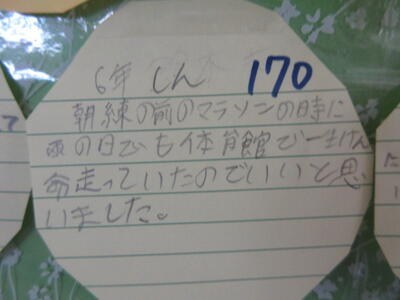 6年 しん 170
朝練の前のマラソンの時に
雨の日でも体育館で一生けん
命走っていたのでいいと思
いました。